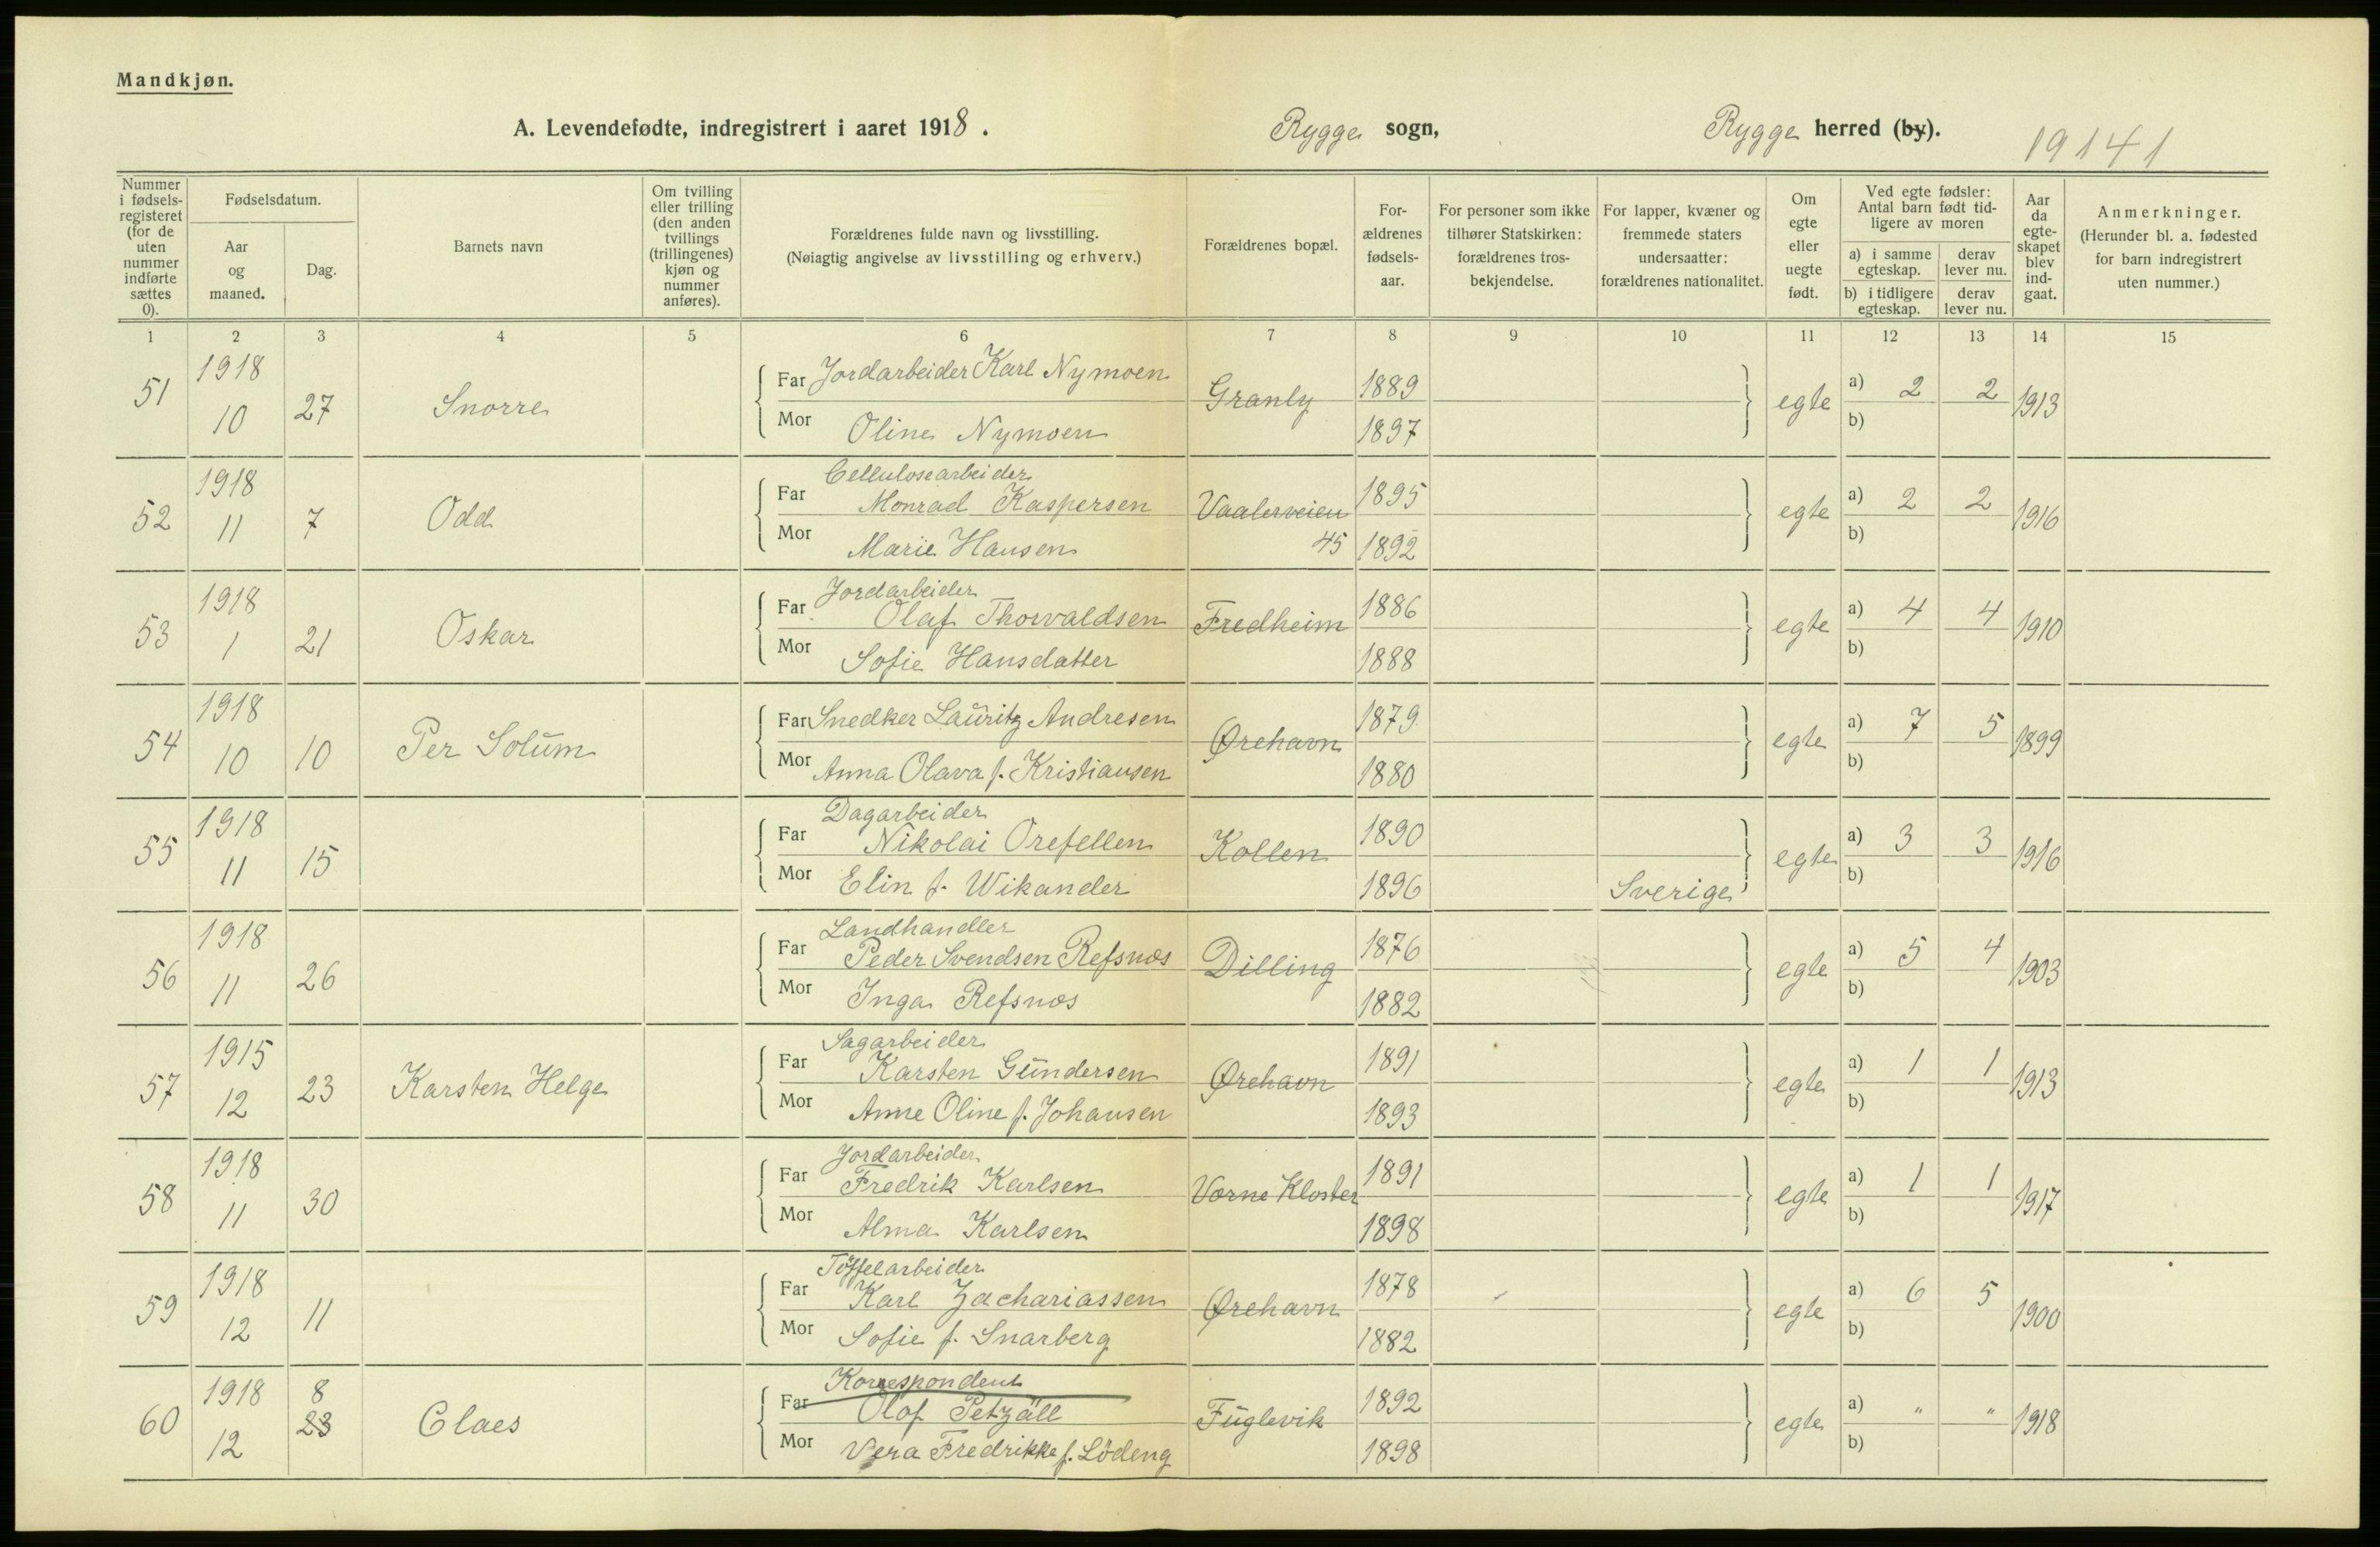 Mandkjøn.
A. Levendefødte, indregistrert i aaret 1918. Rygge sogn, Rygge herred (by).
19141
Nummer i fødselsregisteret (for de uten nummer indførte sættes 0).
Fødselsdatum.
Aar og maaned.
Dag.
Barnets navn
Om tvilling eller trilling (den anden tvillings (trillingenes) kjøn og nummer anføres).
Forældrenes fulde navn og livsstilling.
(Nøiagtig angivelse av livsstilling og erhverv.)
Forældrenes bopæl.
Forældrenes fødselsaar.
For personer som ikke tilhører Statskirken: forældrenes trosbekjendelse.
For lapper, kvæner og fremmede staters undersaatter: forældrenes nationalitet.
Om egte eller uegte født.
Ved egte fødsler: Antal barn født tidligere av moren
a) i samme egteskap. derav lever nu.
b) i tidligere egteskap. derav lever nu.
Aar da egteskapet blev indgaat.
Anmerkninger.
(Herunder bl. a. fødested for barn indregistrert uten nummer.)
1 2 3 4 5 6 7 8 9 10 11 12 13 14 15
51 1918 10 27 Snorre
Far Jordarbeider Karl Nymoen Granly 1889 egte a) 2 2 1913
Mor Oline Nymoen 1897 b)
52 1918 11 7 Odd
Cellulosearbeider
Far Monrad Kaspersen Vaalerveien 1895 egte a) 2 2 1916
Mor Marie Hansen 45 1892 b)
53 1918 1 21 Oskar
Jordarbeider
Far Olaf Thorvaldsen Fredheim 1886 egte a) 4 4 1910
Mor Sofie Hansdatter 1888 b)
54 1918 10 10 Per Solum
Far Snedker Lauritz Andresen Ørehavn 1879 egte a) 7 5 1899
Mor Anna Olava f. Kristiansen 1880 b)
55 1918 11 15
Dagarbeider
Far Nikolai Orefellen Kollen 1890 egte a) 3 3 1916
Mor Elin f. Wikander 1896 Sverige b)
56 1918 11 26
Landhandler
Far Peder Svendsen Refsnes Dilling 1876 egte a) 5 4 1903
Mor Inga Refsnes 1882 b)
57 1915 12 23 Karsten Helge
Sagarbeider
Far Karsten Gundersen Ørehavn 1891 egte a) 1 1 1913
Mor Anne Oline f. Johansen 1893 b)
58 1918 11 30
Jordarbeider
Far Fredrik Karlsen Værne Kloster 1891 egte a) 1 1 1917
Mor Alma Karlsen 1898 b)
59 1918 12 11
Töffelarbeider
Far Karl Zachariassen Ørehavn 1878 egte a) 6 5 1900
Mor Sofie f. Snarberg 1882 b)
60 1918 12 8 23 Claes
Korrespondent
Far Olof Petzäll Fuglevik 1892 egte a) " " 1918
Mor Vera Fredrikke f. Lödeng 1898 b)